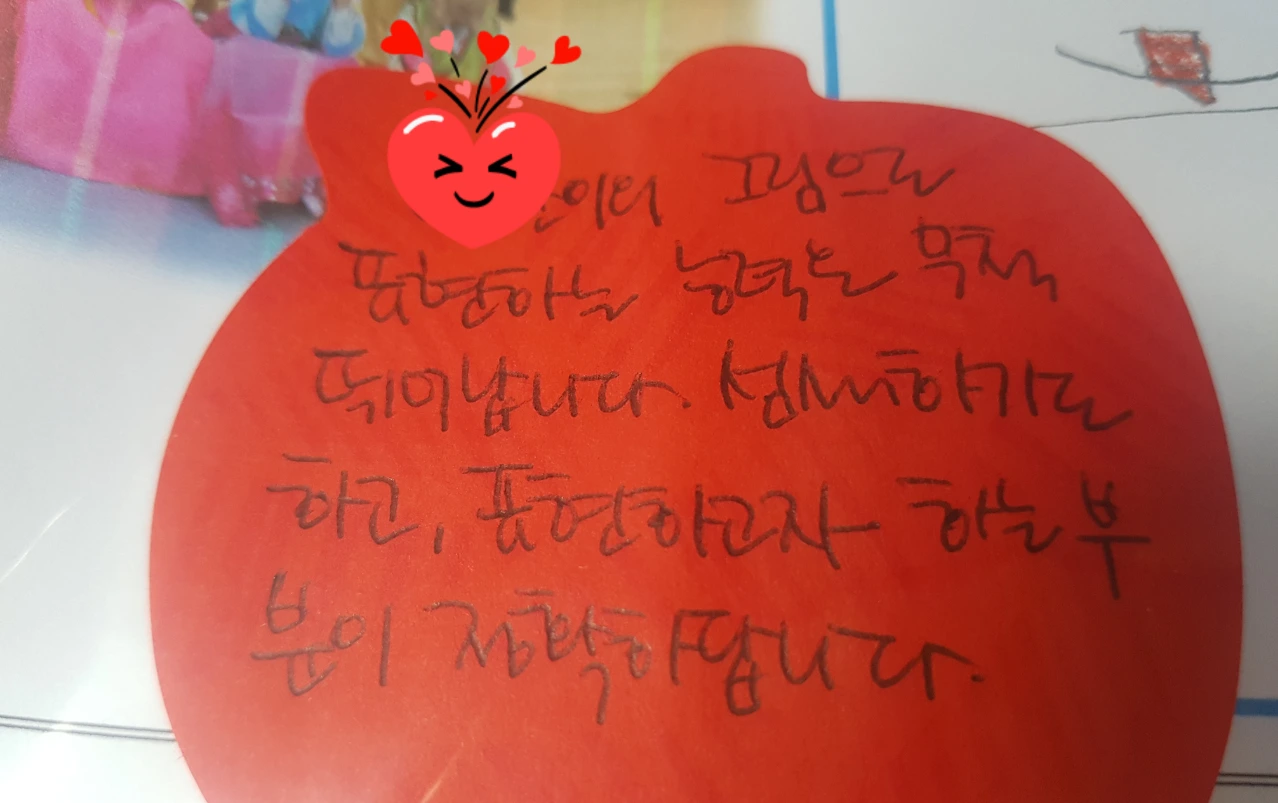 이의 그림으로
표현하는 능력은 무척
뛰어납니다. 섬세하기도
하고, 표현하고자 하는 부
분이 정확하답니다.